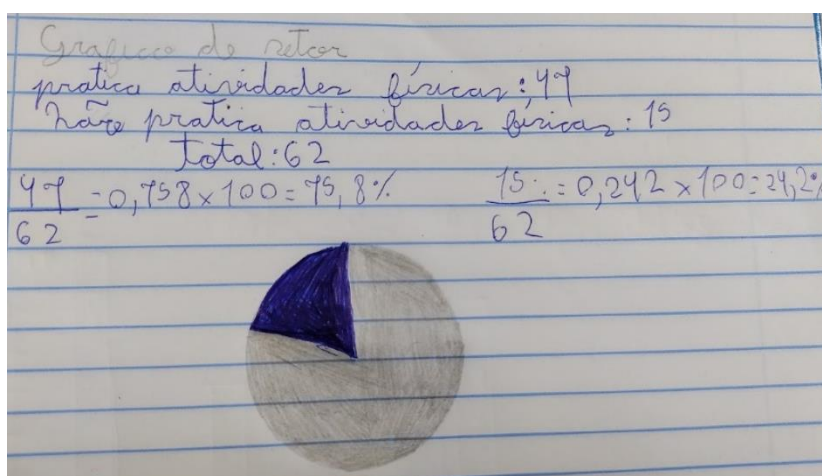 Grafico de setor
pratica atividades físicas: 47
Não pratica atividades físicas: 15
total: 62
47/62 = 0,758 x 100 = 75,8% 15/62 = 0,242 x 100 = 24,2%